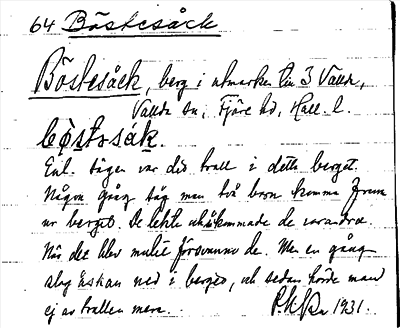 64 Böstesåck
Böstesåck, berg i utmarken till 3 Vallda,
Vallda sn, Fjäre hd, Hall. l.
Enl. sägen var det troll i detta berget.
Någon gång såg man två barn komma fram
ur berget. De lekte och kammade de varandra.
När det blev mulit försvunno de. Men en gång
slog åskan ned i berget, och sedan hörde man
ej av trollen mera. 1931.